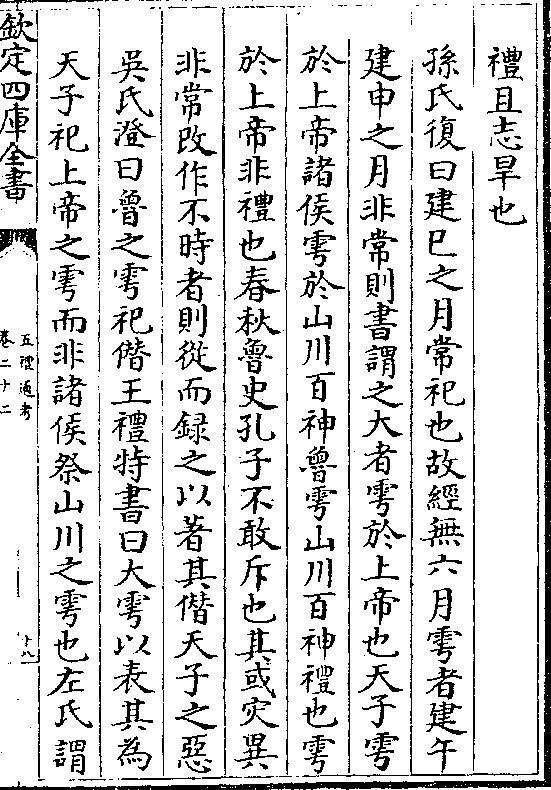 禮且志旱也
孫氏復曰建巳之月常祀也故經無六月雩者建午
建申之月非常則書謂之大者雩於上帝也天子雩
於上帝諸侯雩於山川百神魯雩山川百神禮也雩
於上帝非禮也春秋魯史孔子不敢斥也其或災異
非常改作不時者則從而録之以著其僭天子之惡
吳氏澄曰魯之雩祀僭王禮特書曰大雩以表其為
天子祀上帝之雩而非諸侯祭山川之雩也左氏謂
欽定四庫全書
五禮通考
卷二十二
十八